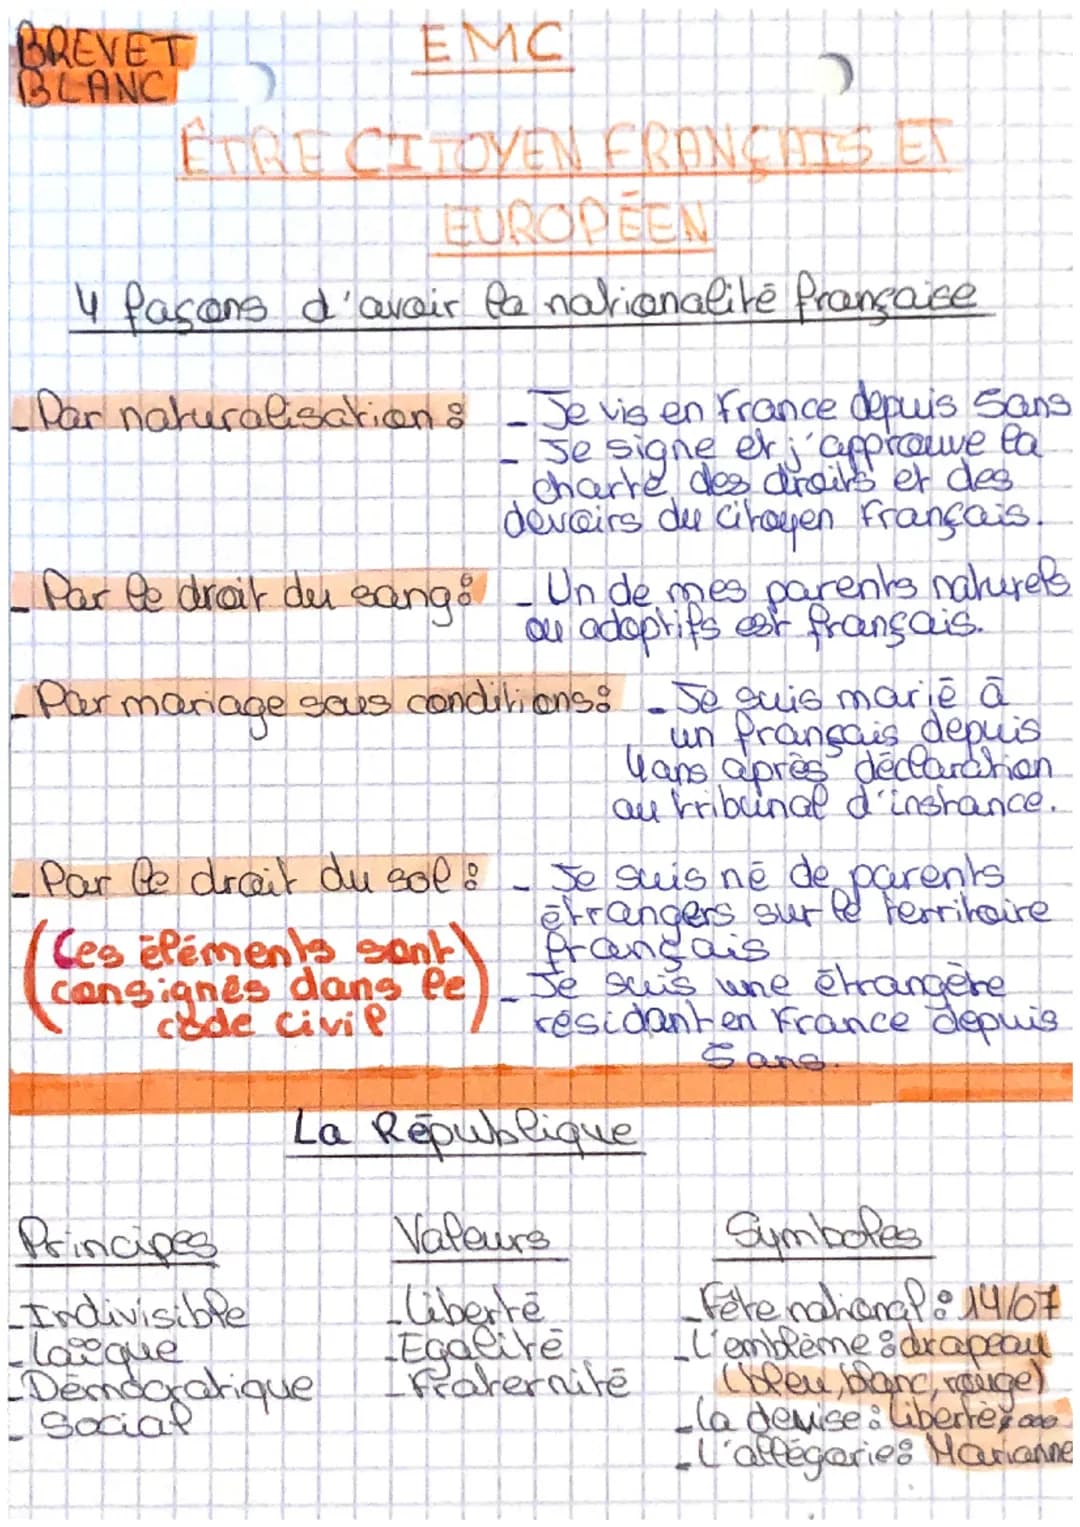 BREVET
BLANC
EMC
ÊTRE CITOYEN FRANÇAIS ET
EUROPÉEN
4 façons d'avoir la nationalité française
- Par naturalisation :
- Je vis en France depuis 5ans
- Je signe et j'approuve la
charte des droits et des
devoirs du citoyen Français.
- Par le droit du sang :
- Un de mes parents naturels
ou adoptifs est français.
- Par mariage sous conditions :
- Je suis marié à
un français depuis
4ans après déclaration
au tribunal d'instance.
- Par le droit du sol :
- Je suis né de parents
étrangers sur le territoire
français
- Je suis une étrangère
résidant en France depuis
5 ans.
(Ces éléments sont
consignés dans le
code civil)
La République
Principes
- Indivisible
- Laïque
- Démocratique
- Social
Valeurs
- Liberté
- Egalité
- Fraternité
Symboles
- Fête national : 14/07
- L'emblème : drapeau
(bleu, blanc, rouge)
- La devise : Liberté, ...
- L'allégorie : Marianne